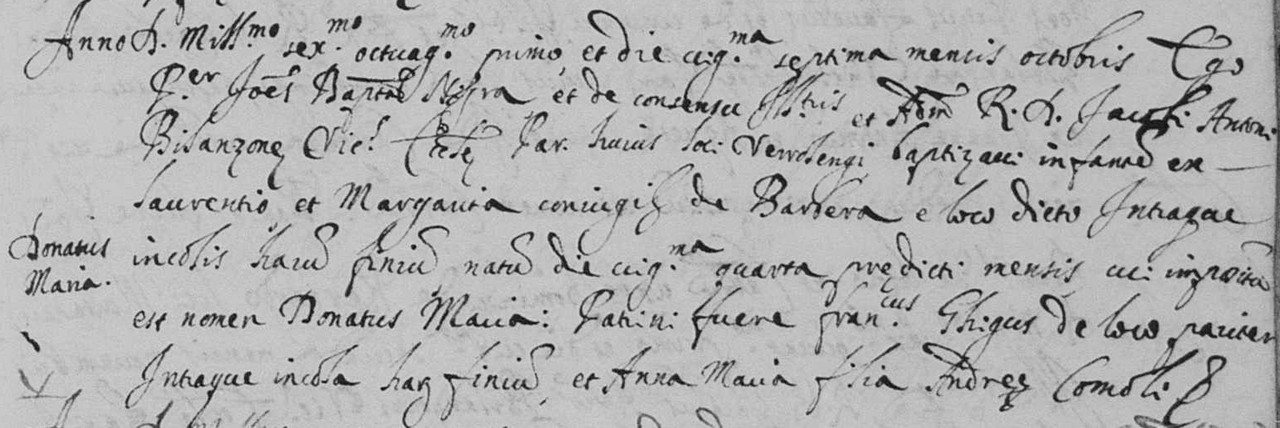 Anno D. Mill.mo sex.mo octuag.mo primo, et die vig.ma septima mensis octobris Ego
P.er Joes Bapta Nigra et de consensu Ill.tris et Adm R. D. Jacobi Antoni
Bisanzonę Vic.s Ecclę Par. huius loci Verolengi baptizavi infante ex
Laurentio et Margarita coniugib de Barbera e loco dicto Intraque
Donatus Maria.
incolis haru finiu natu die vig.ma quarta prędicti mensis cui impositu
est nomen Donatus Maria: Patrini fuere Fran.cus Ghigus de loco pariter
Intraque incola har finiu et Anna Maria filia Andreę Comoli